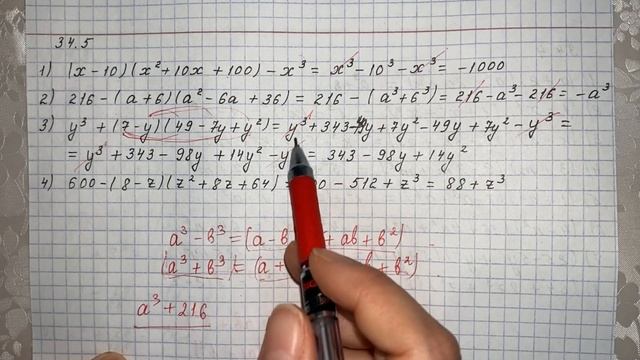 34.5
1) (x-10)(x²+10x+100)-x³= x³-10³-x³= -1000
2) 216-(a+6)(a²-6a+36)=216-(a³+6³)=216-a³-216=-a³
3) y³+(7-y)(49-7y+y²)= y³+343-49y+7y²-49y+7y²-y³=
= y³+343-98y+14y²-y = 343-98y+14y²
4) 600-(8-z)(z²+8z+64)= 00-512+z³=88+z³
a³-b³=(a-b +ab+b²)
(a³+b³)=(a+ b+b²)
a³+216